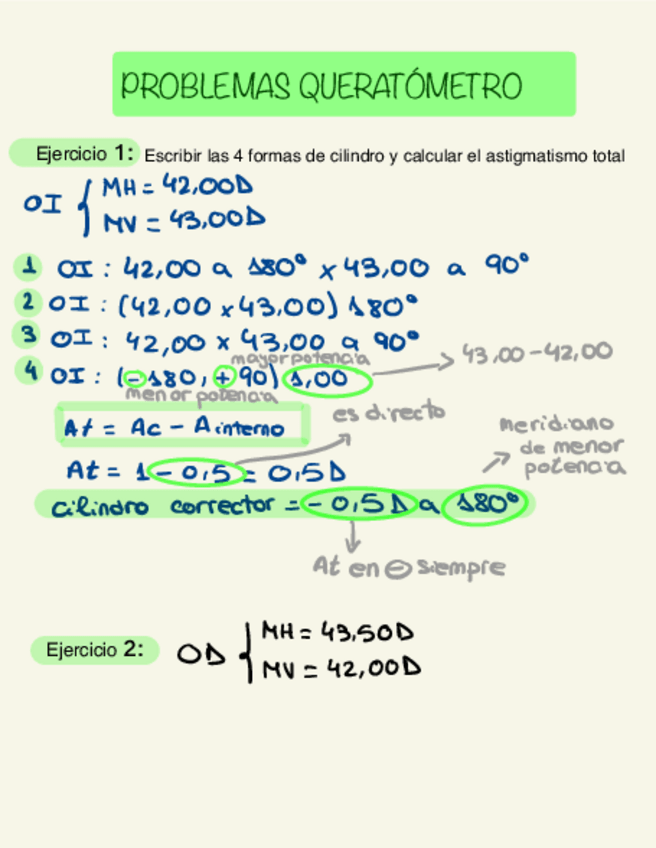 PROBLEMAS QUERATÓMETRO
Ejercicio 1: Escribir las 4 formas de cilindro y calcular el astigmatismo total
OI { MH = 42,00D
MV = 43,00D
1 OI : 42,00 a 180º x 43,00 a 90º
2 OI : (42,00 x 43,00) 180º
3 OI : 42,00 x 43,00 a 90º
mayor potencia
43,00 - 42,00
4 OI : (- 180, + 90) 1,00
menor potencia
es directo
At = Ac - A interno
meridiano
de menor
potencia
At = 1 - 0,5 = 0,5D
cilindro corrector = - 0,5 D a 180º
At en - siempre
Ejercicio 2: OD { MH = 43,50D
MV = 42,00D